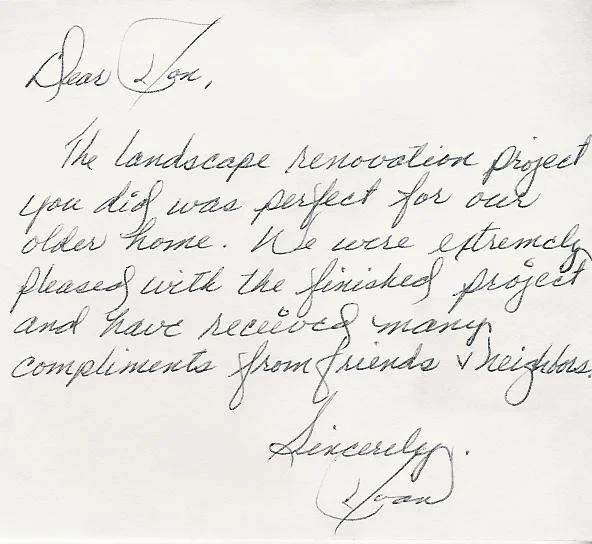 Dear Jon,
The landscape renovation project
you did was perfect for our
older home. We were extremely
pleased with the finished project
and have received many
compliments from friends & neighbors.
Sincerely,
Joan